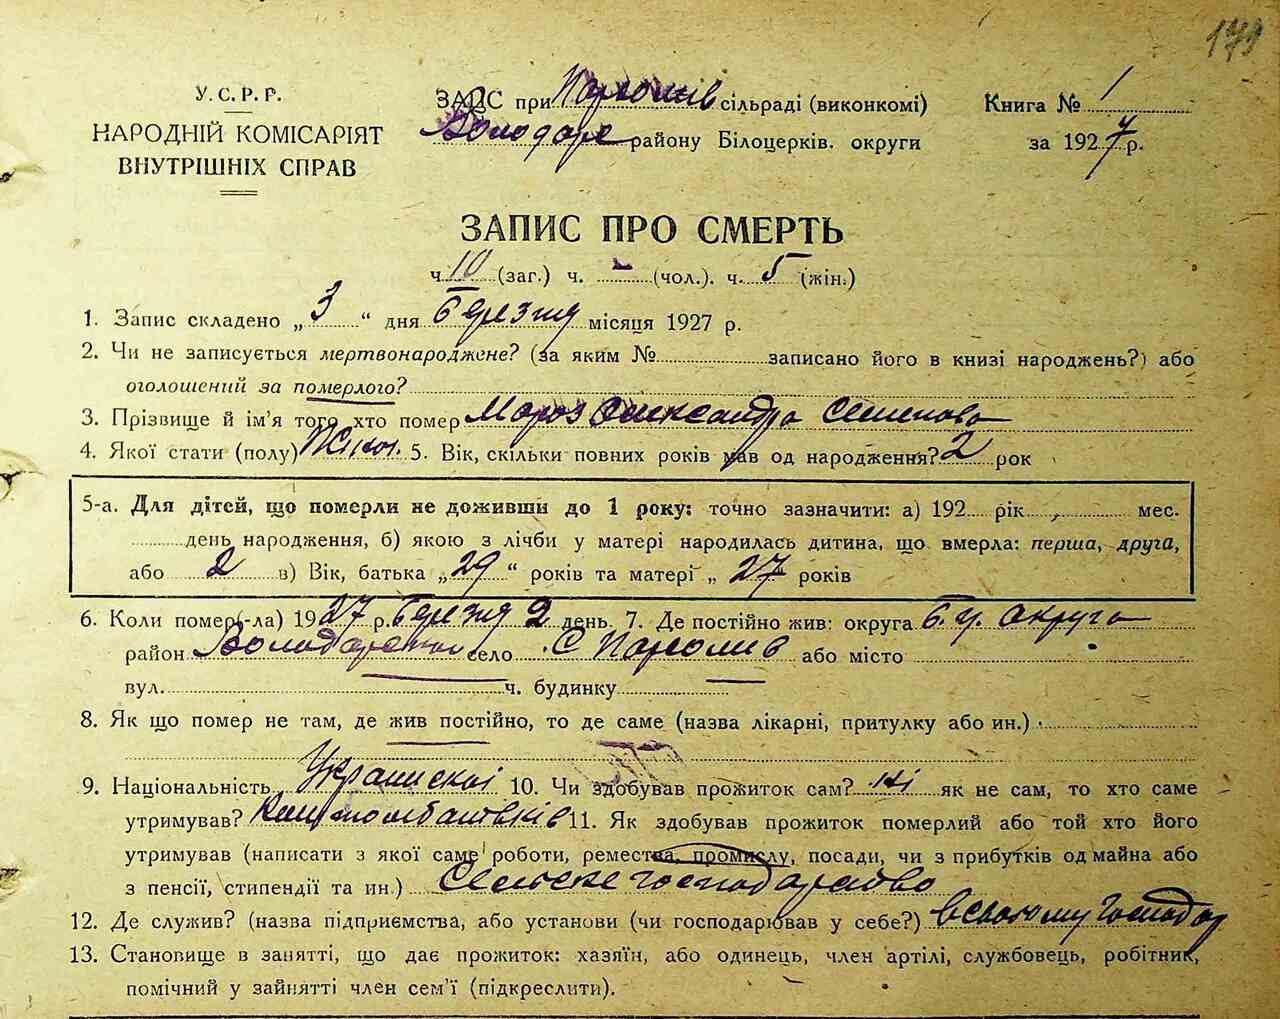 179
У.С.Р.Р.
НАРОДНІЙ КОМІСАРІЯТ
ВНУТРІШНІХ СПРАВ
ЗАПС при сільраді (виконкомі)
Володарс району Білоцерків. округи
Книга № 1
за 1927 р.
ЗАПИС ПРО СМЕРТЬ
ч. 10 (заг.) ч. - (чол.). ч. 5 (жін.)
1. Запис складено „ 3 “ дня березня місяця 1927 р.
2. Чи не записується мертвонароджене? (за яким № записано його в книзі народжень?) або
оголошений за померлого?
3. Прізвище й ім'я того, хто помер Мороз Олександра Семенова
4. Якої стати (полу) Жіноч. 5. Вік, скільки повних років мав од народження? 2 рок
5-а. Для дітей, що померли не доживши до 1 року: точно зазначити: а) 192 рік, мес.
день народження, б) якою з лічби у матері народилась дитина, що вмерла: перша, друга,
або 2 в) Вік, батька „ 29 “ років та матері „ 27 років
6. Коли помер(-ла) 1927 р. березня 2 день. 7. Де постійно жив: округа б. ц. округа
район Володарськ село с або місто
вул. ч. будинку
8. Як що помер не там, де жив постійно, то де саме (назва лікарні, притулку або ин.)
9. Національність Украинскоі 10. Чи здобував прожиток сам? ні як не сам, то хто саме
утримував? батьків 11. Як здобував прожиток померлий або той хто його
утримував (написати з якої саме роботи, ремества, промислу, посади, чи з прибутків од майна або
з пенсії, стипендії та ин.) Сельске господарство
12. Де служив? (назва підприємства, або установи (чи господарював у себе?) всвоему господар
13. Становище в занятті, що дає прожиток: хазяїн, або одинець, член артілі, службовець, робітник,
помічний у зайнятті член сем'ї (підкреслити).